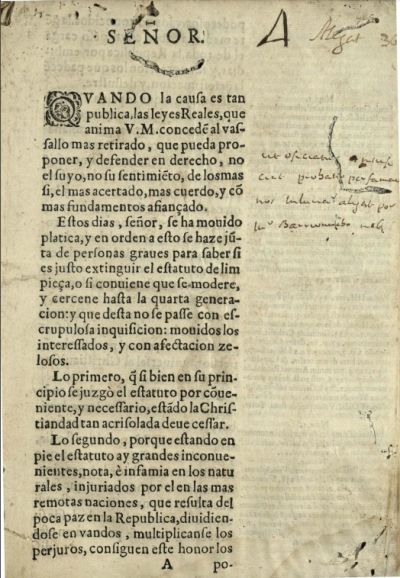 SEÑOR.
QVANDO la causa es tan
publica, las leyes Reales, que
anima V.M. concedẽ al vas-
sallo mas retirado, que pueda pro-
poner, y defender en derecho, no
el suyo, no su sentimiẽto, de los mas
si, el mas acertado, mas cuerdo, y cõ
mas fundamentos afiançado.
Estos dias, señor, se ha mouido
platica, y en orden a esto se haze jũ-
ta de personas graues para saber si
es justo extinguir el estatuto de lim
pieça, o si conuiene que se modere,
y cercene hasta la quarta genera-
cion: y que desta no se passe con es-
crupulosa inquisicion: mouidos los
interessados, y con afectacion ze-
losos.
Lo primero, q̃ si bien en su prin-
cipio se juzgò el estatuto por cõue-
niente, y necessario, estãdo la Chris-
tiandad tan acrisolada deue cessar.
Lo segundo, porque estando en
pie el estatuto ay grandes inconue-
nientes, nota, è infamia en los natu
rales, injuriados por el en las mas
remotas naciones, que resulta del
poca paz en la Republica, diuidien-
dose en vandos, multiplicanse los
perjuros, consiguen este honor los
A po-